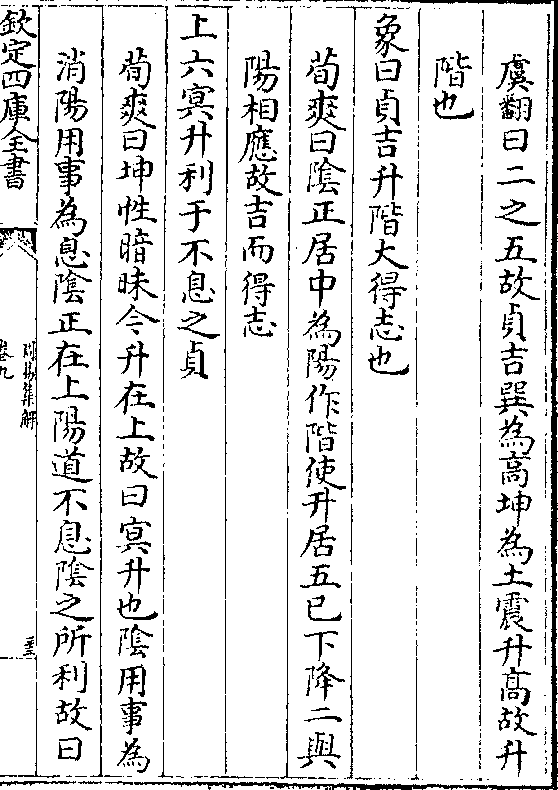 虞翻曰二之五故貞吉巽為高坤為土震升高故升
階也
象曰貞吉升階大得志也
荀爽曰陰正居中為陽作階使升居五已下降二與
陽相應故吉而得志
上六冥升利于不息之貞
荀爽曰坤性暗昧今升在上故曰冥升也陰用事為
消陽用事為息陰正在上陽道不息陰之所利故曰
欽定四庫全書
周易集解
卷九